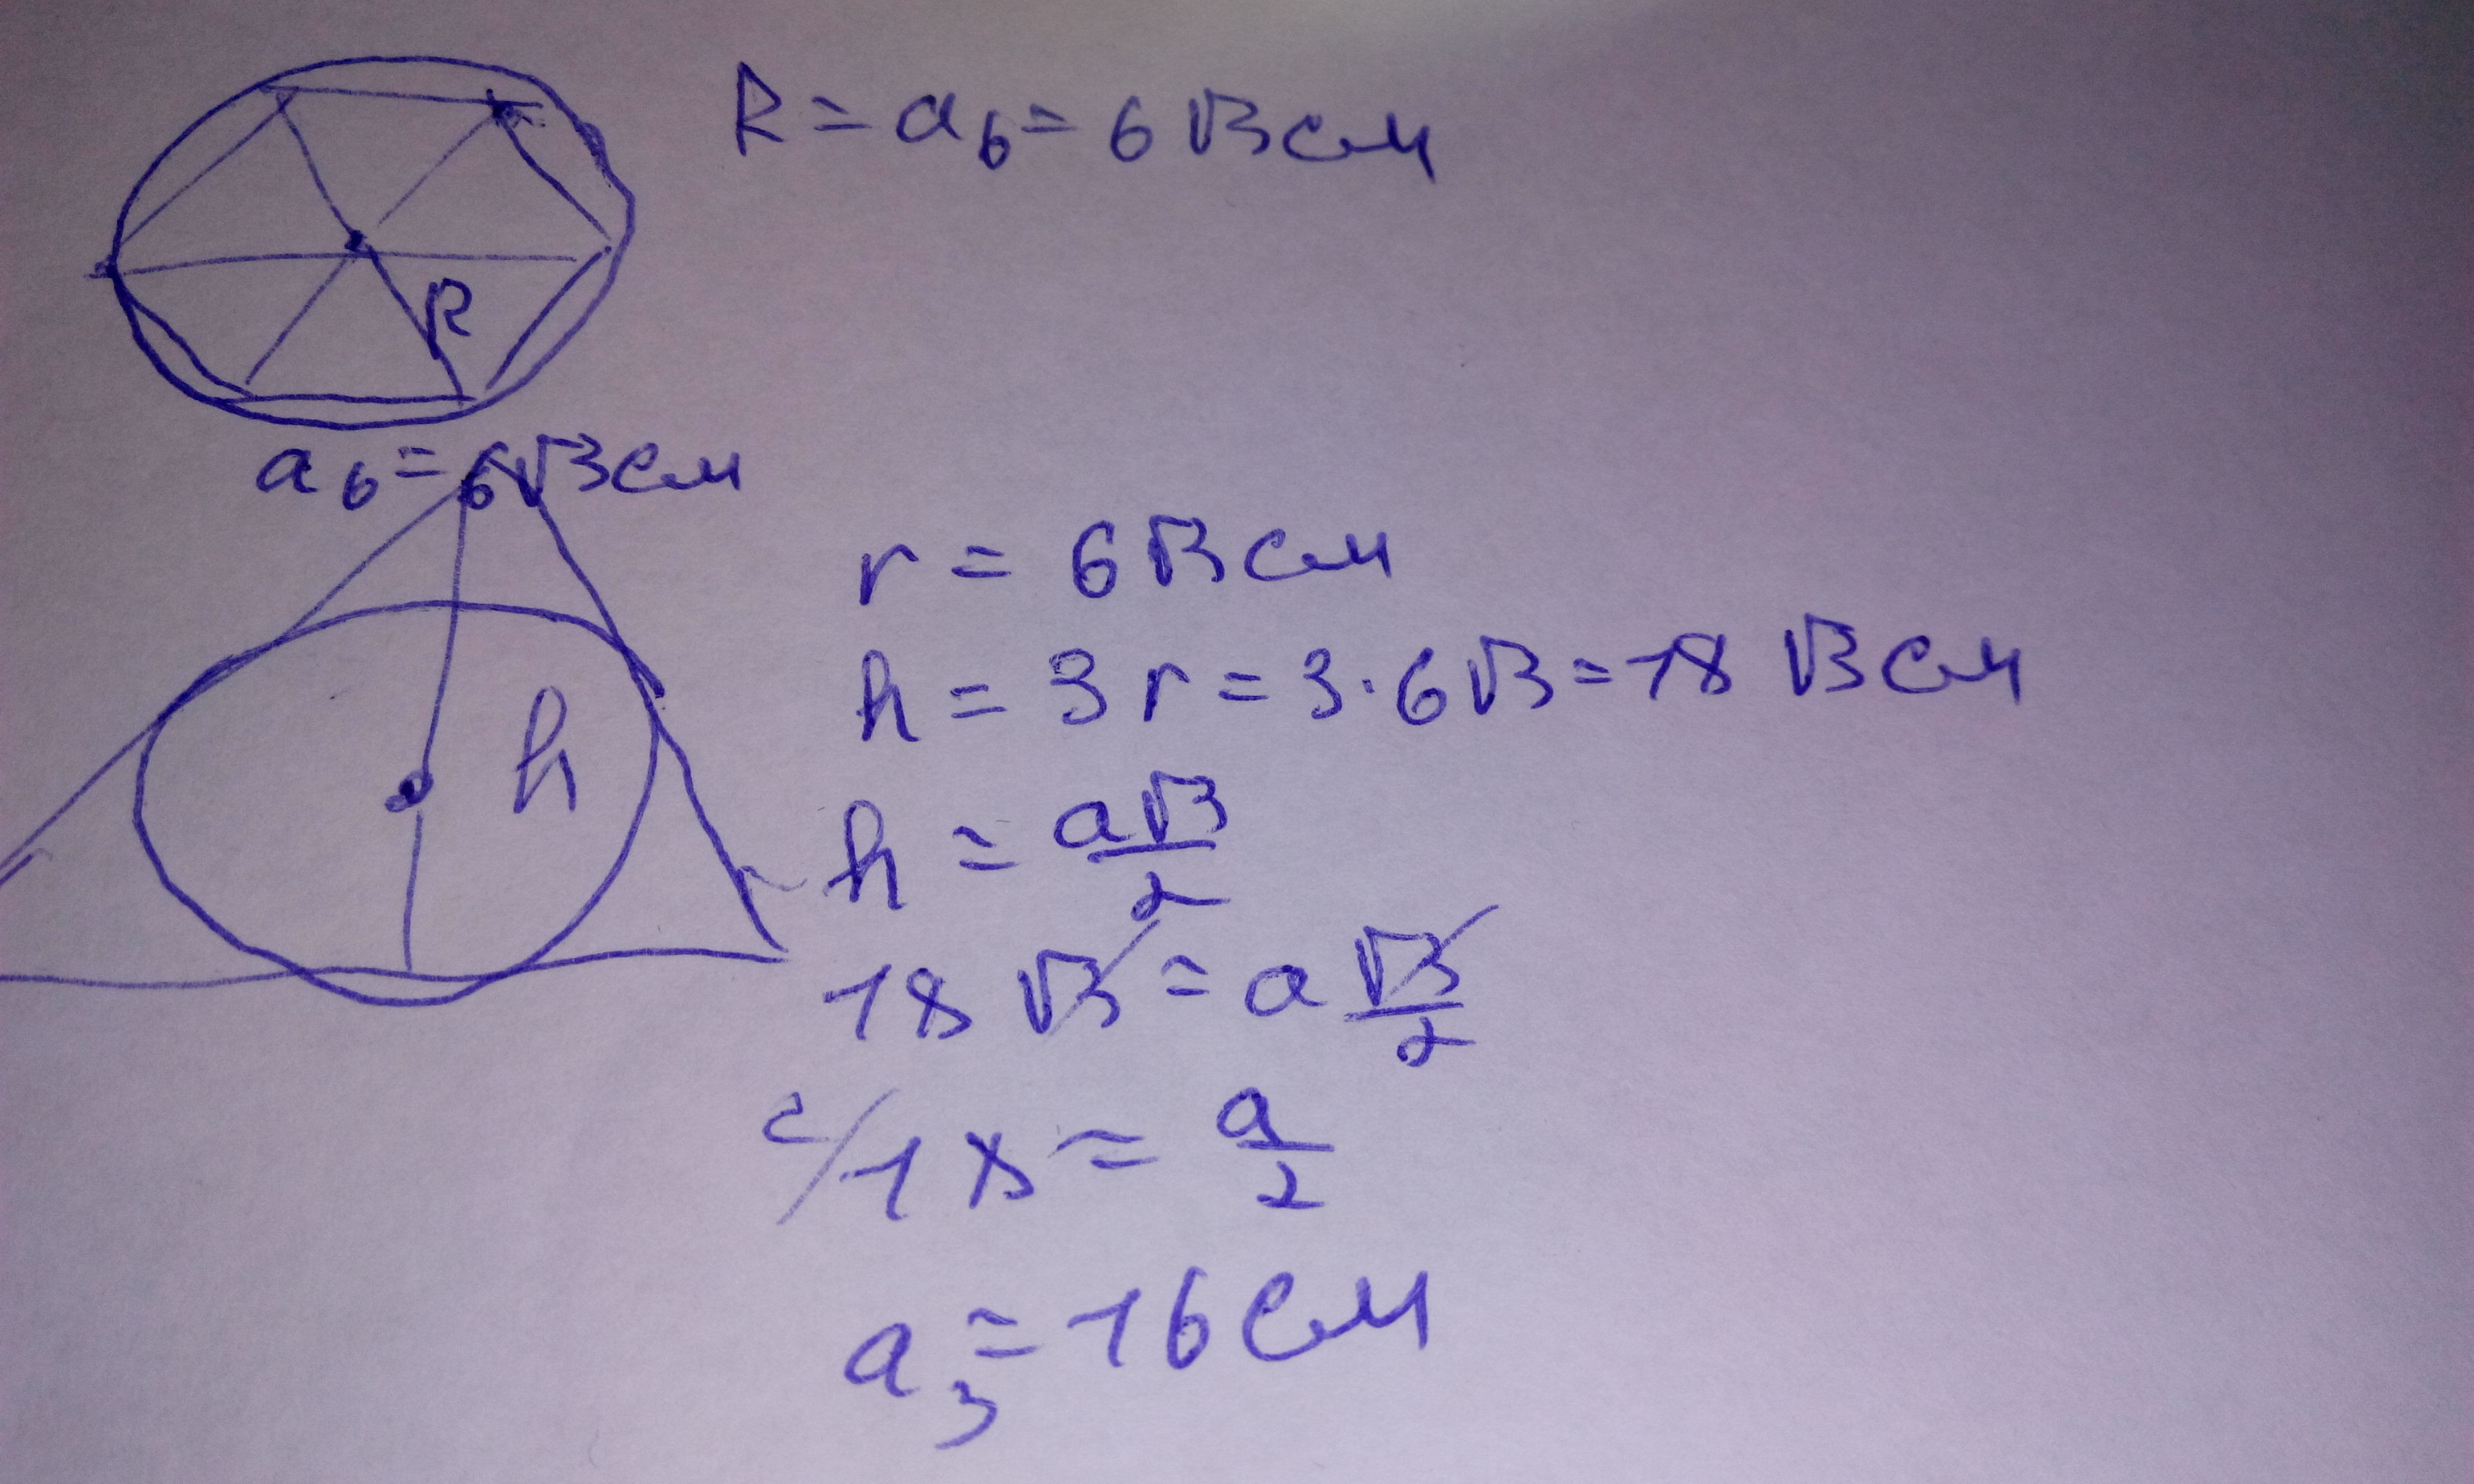 R = a₆ = 6√3 см
R
a₆ = 6√3 см
r = 6√3 см
h = 3r = 3·6√3 = 18√3 см
h
h = a√3/2
18√3 = a √3/2
2/18 = a/2
a₃ = 16 см